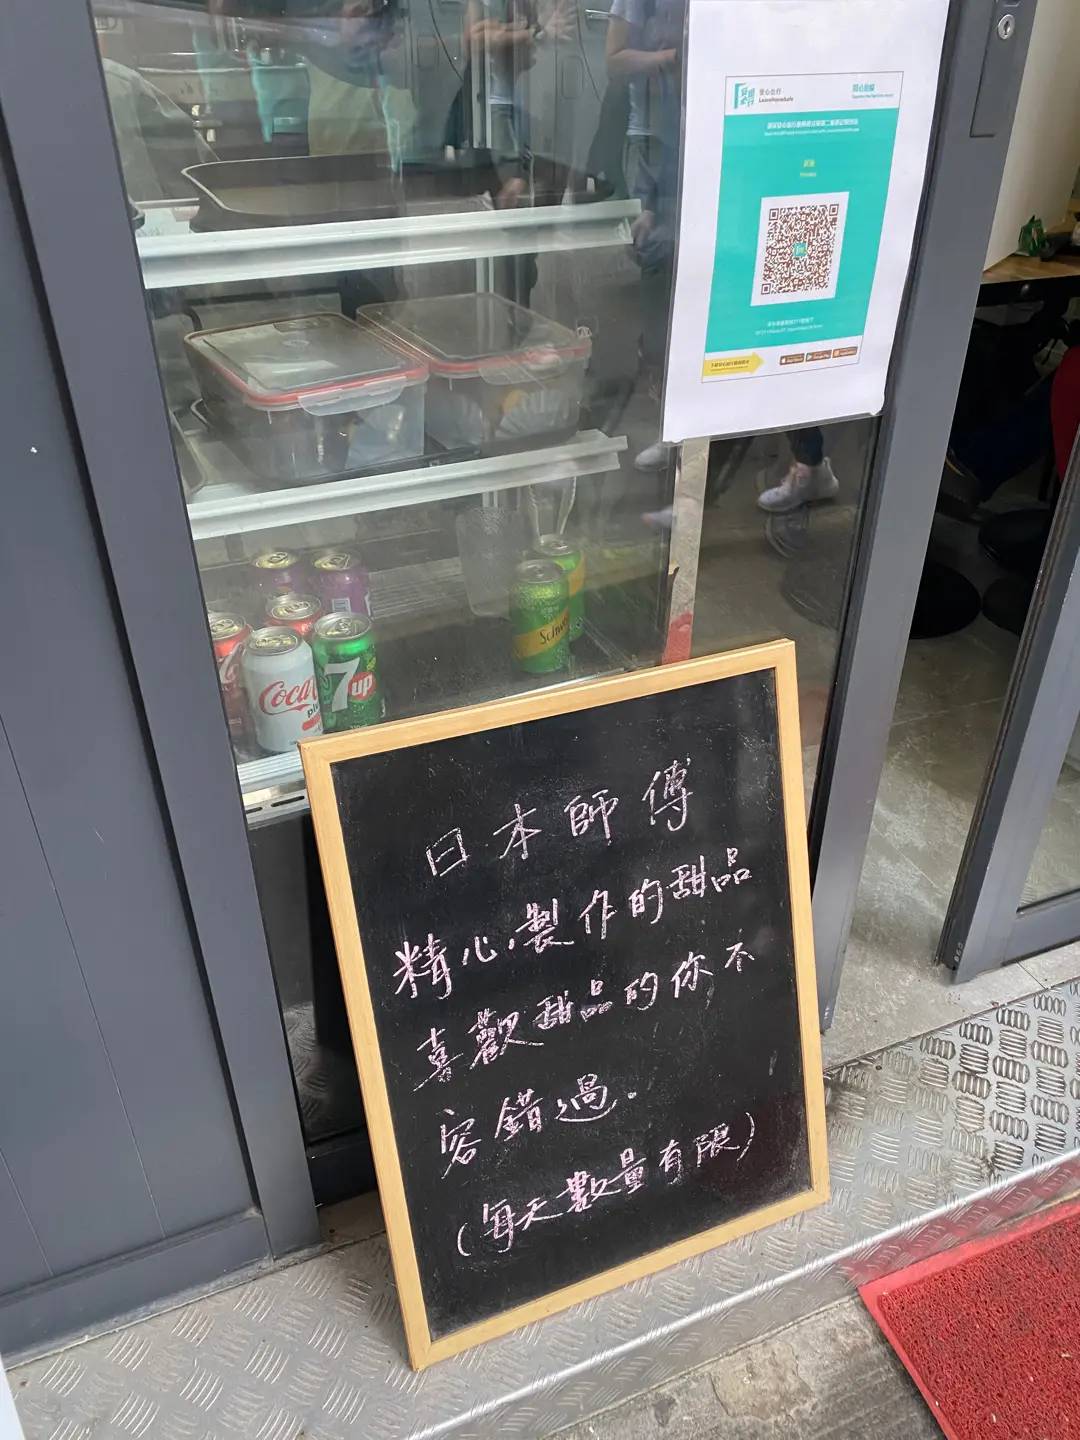 安心出行
LeaveHomeSafe
同心抗疫
Coca
7up
Schw
日本師傅
精心製作的甜品
喜歡甜品的你不
容錯過.
(每天數量有限)